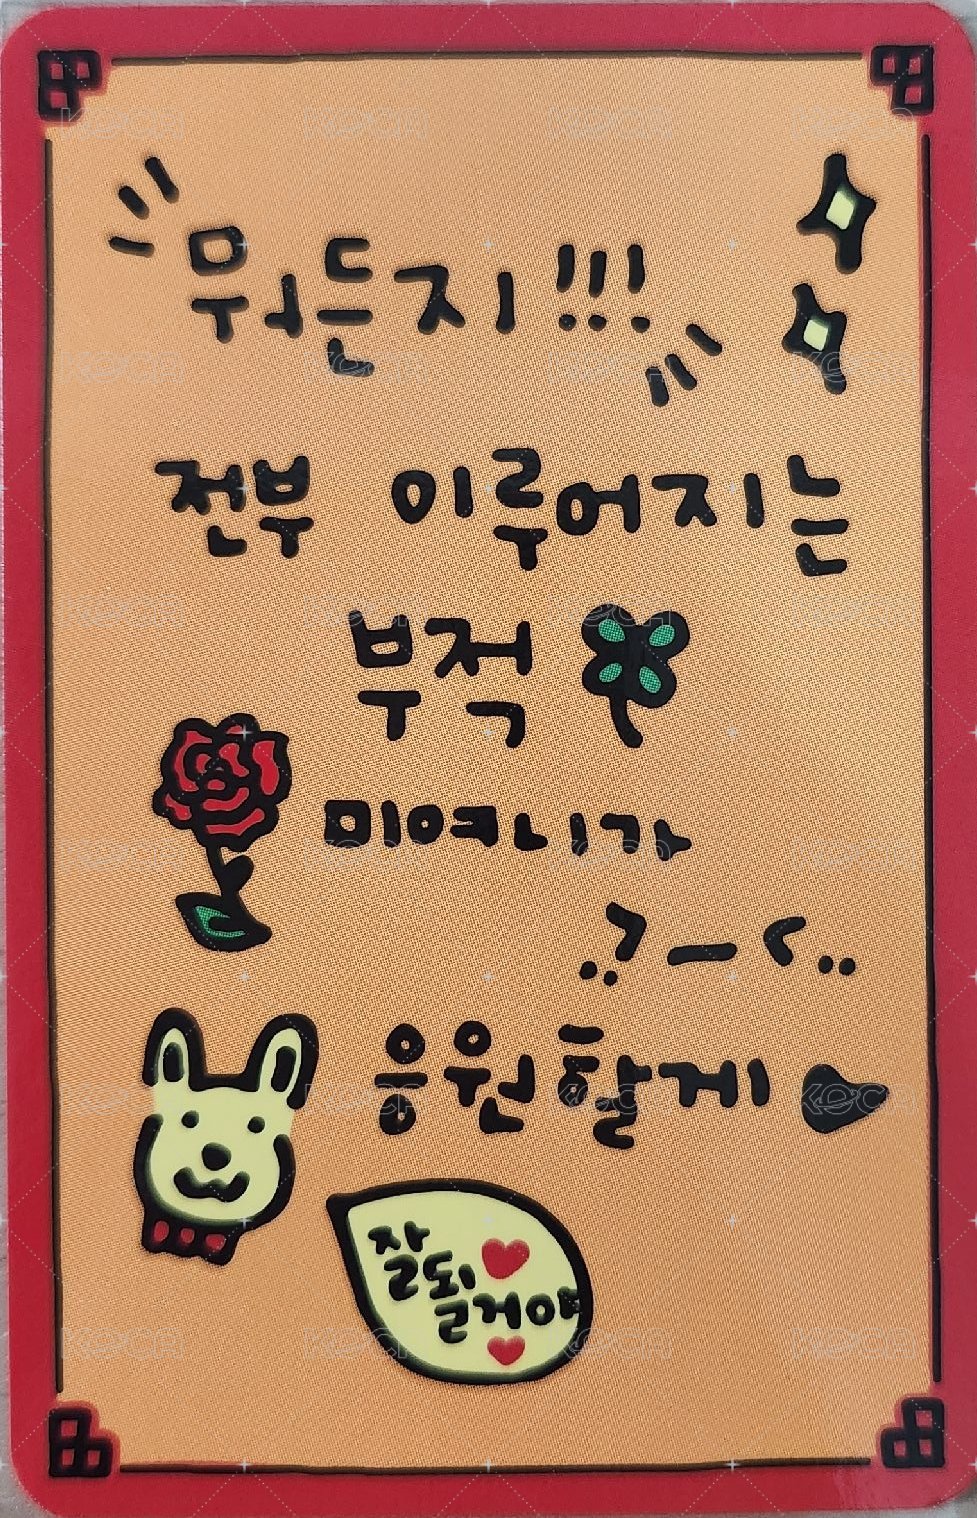 뭐든지!!!
전부 이루어지는
부적
미여니가
응원할게
잘
될거야
KOCA